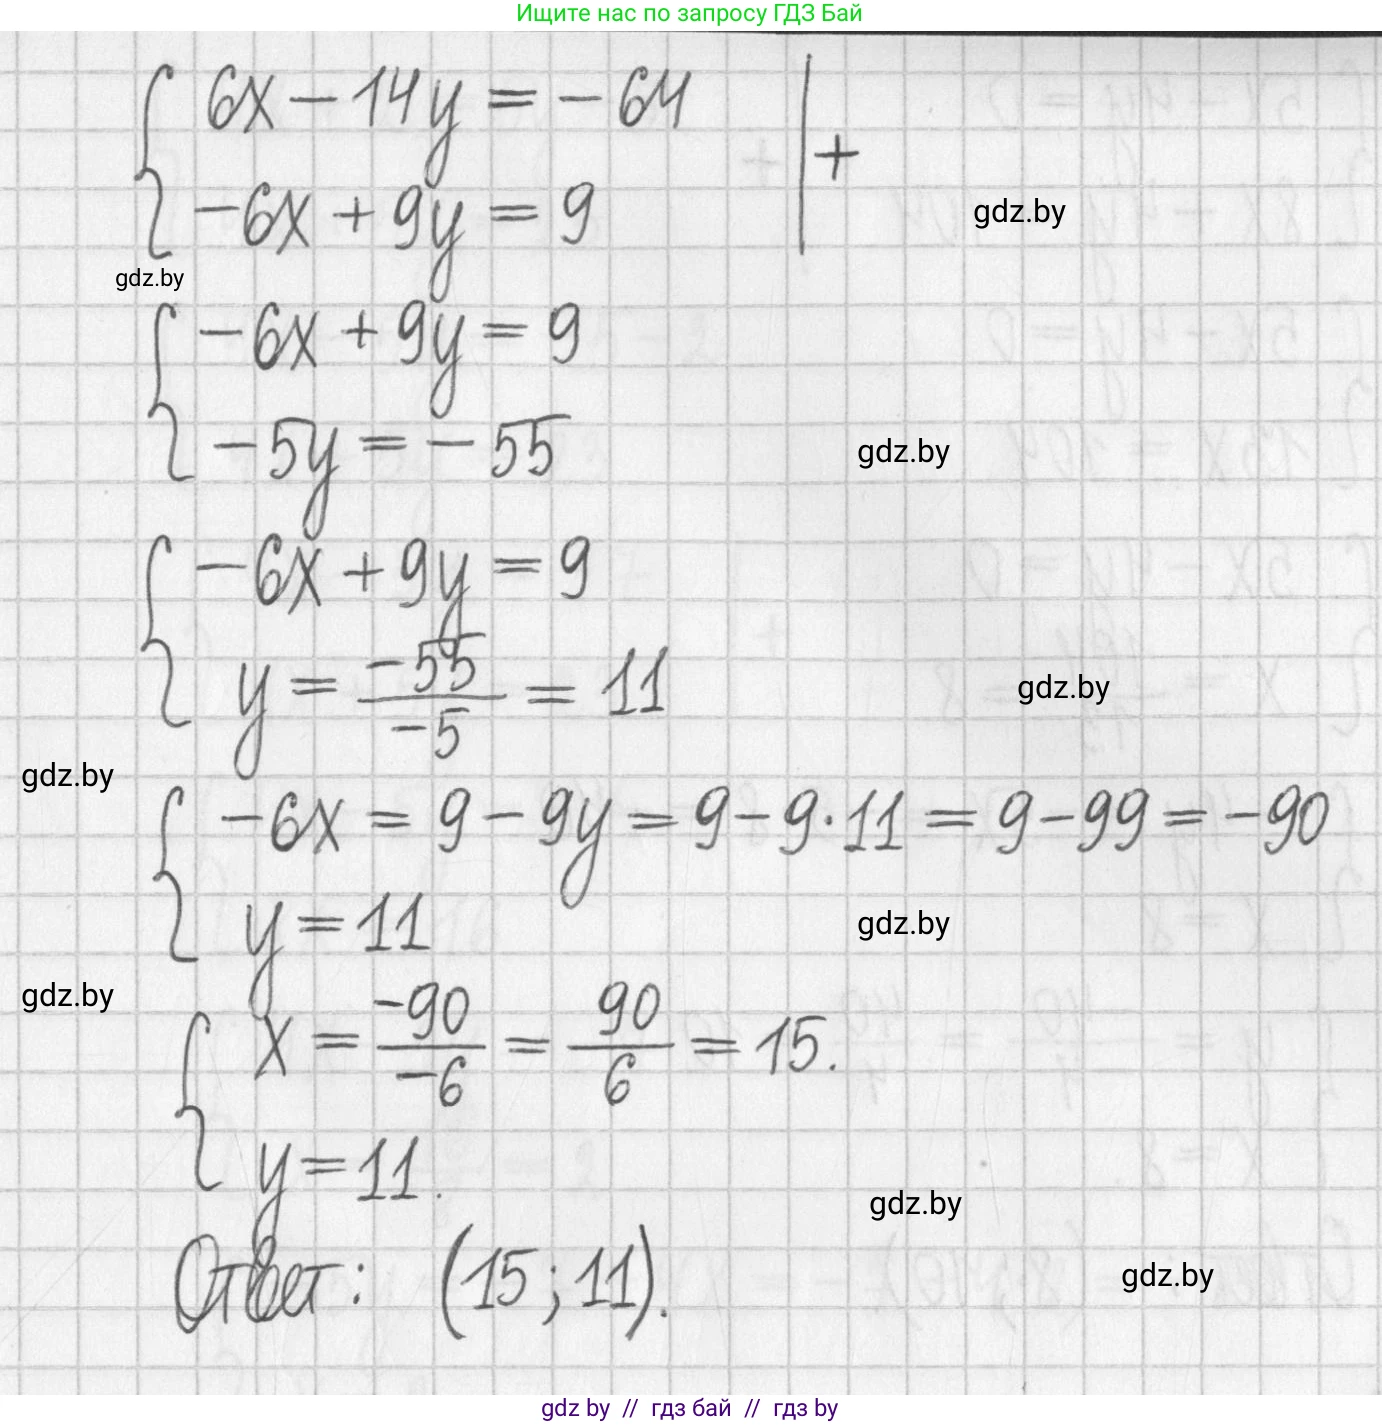 Ищите нас по запросу ГДЗ Бай
6x - 14y = - 64
+
-6x + 9y = 9
gdz.by
gdz.by
-6x + 9y = 9
-5y = - 55
gdz.by
-6x + 9y = 9
y = -55/-5 = 11
gdz.by
gdz.by
-6x = 9 - 9y = 9 - 9·11 = 9 - 99 = -90
y = 11
gdz.by
gdz.by
x = -90/-6 = 90/6 = 15.
y = 11.
gdz.by
Ответ: (15; 11).
gdz.by
gdz by // гдз бай // гдз by